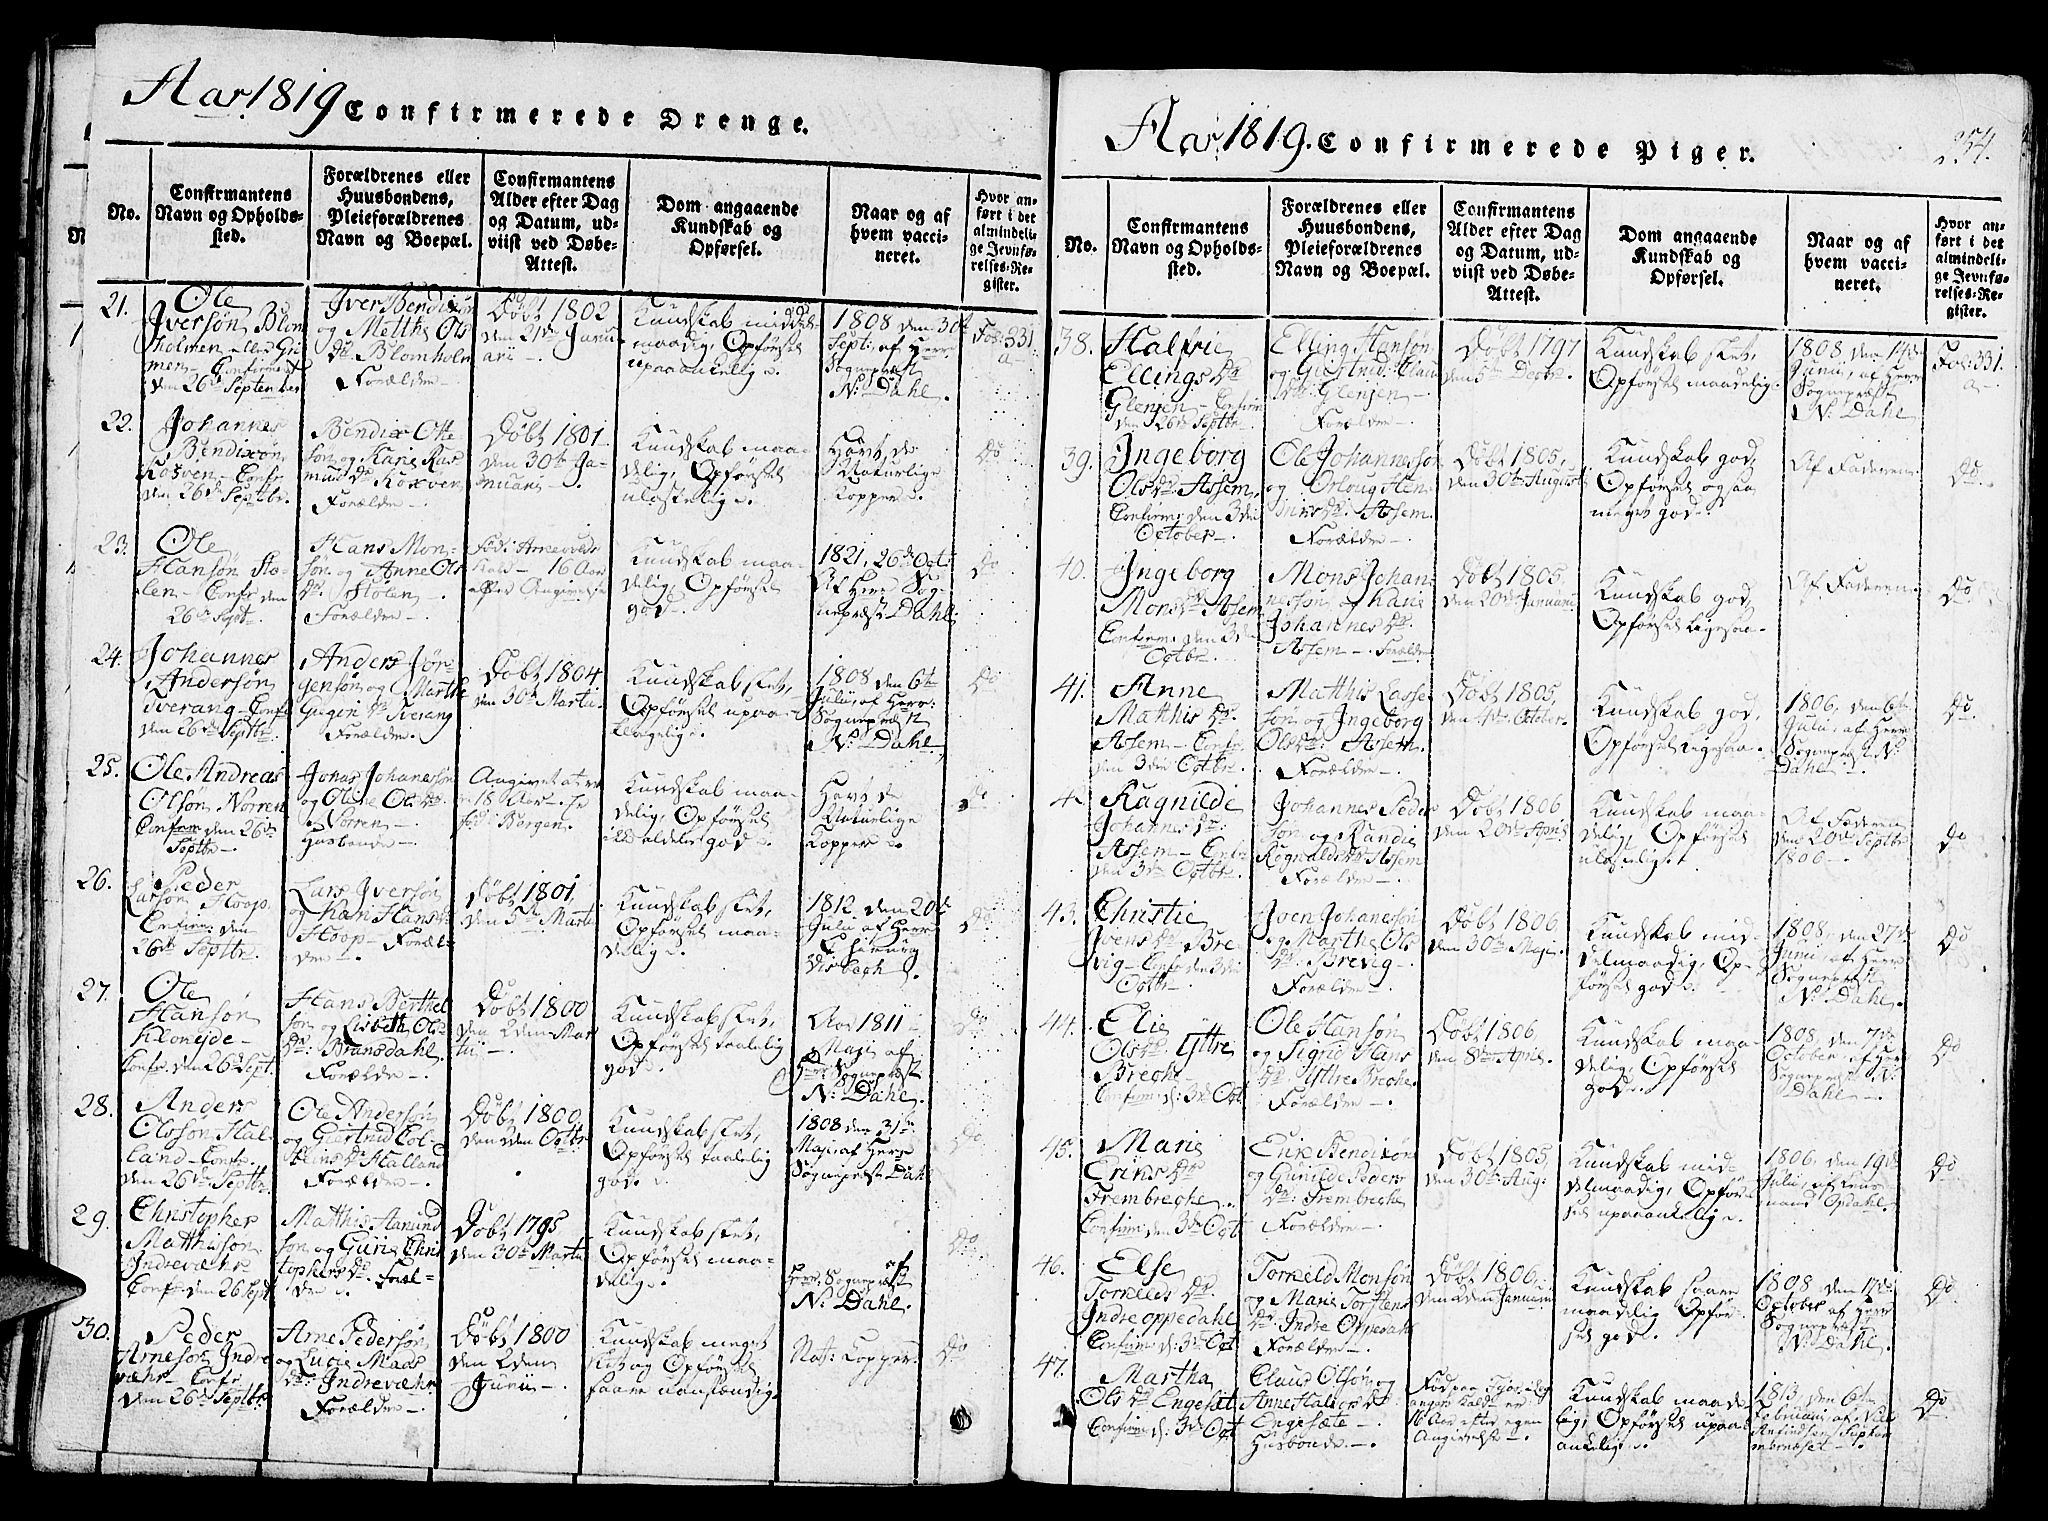 Aar 1819 Confirmerede Drenge.
No.
Confirmantens
Navn og Opholds-
sted.
Forældrenes eller
Huusbondens,
Pleieforældrenes
Navn og Boepæl.
Confirmantens
Alder efter Dag
og Datum, ud-
viist ved Døbe-
Attest.
Dom angaaende
Kundskab og
Opførsel.
Naar og af
hvem vacci-
neret.
Hvor an-
ført i det
almindeli-
ge Jevnfø-
relses-Re-
gister.
21.
Ole
Iversøn Blom
holmen
Confirmert
den 26de September
Iver Bendixsøn
og Metthe Ols
Dr. Blomholm
Forældre
Døbt 1802
den 21de Janu
arii
Kundskab middel-
maadig, Opførsel
upaaankelig
1808 den 30te
Sept: af Herr
Sognepræst
N: Dahl.
Fol: 331.
a
22.
Johannes
Bendixøn
Confr
den 26de Septbr.
Bendix Otte
søn og Karie Ras
mus Dr.
Forældre
Døbt 1801
den 30te Ja-
nuarii
Kundskab maa-
delig, Opførsel
ulastelig
Havt de
Naturlige
Kopper
Do
23.
Ole
Hansøn Stø-
len - Confr den
26de Septr.
Hans Mon-
søn og Anne Ols
Dr. Stølen
Forældre
16 Aar
Kundskab maa-
delig, Opførsel
god
1821, 26de Octr
Af Herr Sog-
nepræst Dahl
Do
24.
Johannes
Andersøn
Tverang - Confr
den 26de Septbr.
Anders Jør-
gensøn og Marthe
Tverang
Forældre
Døbt 1804
den 30te Martii
Kundskab slet,
Opførsel upaa-
klagelig
1808 den 6te
Julii, af Herr:
Sognepræst
N: Dahl
Do
25.
Ole Andreas
Olsøn, Norren
Confrm den 26de
Septbr
Jonas Johanessøn
og Oline Ols Dr.
Norren
Husbonde
Angivet at være
18 Aar
født i Bergen.
Kundskab maa-
delig, Opførsel
god
Havt de
Naturlige
Kopper
Do
26.
Peder
Larsøn Hoop
Confirm: den
26de Septbr.
Lars Iversøn
og Kari Hans Dr
Hoop - Foræl-
dre
Døbt 1801,
den 5te Martii
Kundskab slet,
Opførsel maa-
delig
1812, den 20de
Julii af Herr
Do
27.
Ole
Hansøn
Confr. den 26 Sept.
Hans Berthel
søn og Lisbeth Ols
Dr. Bransdahl
Forældre
Døbt 1800
den 2den Mar
tii
Kundskab slet,
Opførsel taalelig
god
Aar 1811
Maji af
Herr Sognepræst
N: Dahl.
Do
28.
Anders
Olsøn Hal-
land - Confr.
den 26de Septbr.
Ole Andersøn
og Giertrud
Dr. Halland
Forældre
Døbt 1800
den 2den Octbr
Kundskab slet,
Opførsel taalelig
god
1808 den 31te
Maji af Herr
Sognepræst Dahl
Do
29.
Christopher
Matthisøn
Indrevæhr
Confr den 26 Sept
Matthis Aamund
søn og Gurie Chris
tophers Dr. Foræl-
dre
Døbt 1795
den 30te Martii
Kundskab slet,
Opførsel maa-
delig
af
Herr. Sognepræst
N: Dahl.
Do
30.
Peder
Arnesøn Indre
væhr - Confr
den 26de Septbr.
Arne Pedersøn
og Lucie Maas
Dr: Indrevæhr
Forældre
Døbt 1800
den 2den
Junii
Kundskab meget
slet og Opførsel
faare anstændig.
Nat: Kopper.
Do
Aar 1819. Confirmerede Piger.
254.
No.
Confirmantens
Navn og Opholds-
sted.
Forældrenes eller
Huusbondens,
Pleieforældrenes
Navn og Boepæl.
Confirmantens
Alder efter Dag
og Datum, ud-
viist ved Døbe-
Attest.
Dom angaaende
Kundskab og
Opførsel.
Naar og af
hvem vacci-
neret.
Hvor an-
ført i det
almindeli-
ge Jevnfø-
relses-Re-
gister.
38.
Halfrie
Ellings Dr
Glenjen - Confirm
den 26de Septbr.
Elling Hansøn
og Giertrud Clau
Dr: Glenjen
Forældre
Døbt 1797
den 5te Decbr.
Kundskab slet,
Opførsel maadelig.
1808, den 14de
Junii, af Herr
Sognepræst
N: Dahl
Fol: 331.
a
39.
Ingeborg
Ols Dr. Assem
Confirm: den 3die
October
Ole Johannessøn
og Orloug Hen-
Dr. Assem
Forældre
Døbt 1805,
den 30te August
Kundskab god,
Opførsel ogsaa
meget god
Af Faderen
Do
40.
Ingeborg
Mons Dr. Assem
Confirm. den 3die
Octbr
Mons Johan-
nessøn og Karie
Johannes Dr.
Assem - Forældre
Døbt 1805.
den 20de Januarii
Kundskab god,
Opførsel ligesaa
Af Faderen
Do
41.
Anne
Matthis Dr.
Assem - Confr.
den 3die Octbr.
Matthis Lasse
søn og Ingeborg
Ols Dr: Assem
Forældre
Døbt 1805,
den 4de October
Kundskab god,
Opførsel ligesaa
1806, den 6te
Julii, af Herr
Sognepræst N:
Dahl
Do
4.
Ragnilde
Johannes Dr:
Assem - Confr
den 3die Octbr.
Johannes Peder
søn og Randie
Rognalds Dr Assem
Forældre
Døbt 1806
den 20de April
Kundskab maa-
delig, Opførsel
Af Faderen
den 20de Septbr
1806
Do
43.
Christie
Ivers Dr. Bre-
vig - Confr den 3die
Octbr
Iver Johanessøn
og Marthe Ols
Dr. Brevig
Forældre
Døbt 1806.
den 30te Maji
Kundskab mid-
delmaadig, Op-
førsel god
1808, den 27de
Junii, af Herr
Sognepræst
N: Dahl
Do
44.
Elie
Ols Dr. Ytre
Brecke
Confirm d: 3de Oct
Ole Hansøn
og Sigrid Hans
Dr Yttre Breche.
Forældre
Døbt 1806
den 8de April.
Kundskab maa-
delig, Opførsel
god
1808, den 7de
October, af Herr
Sognepræst N:
Dahl
Do
45.
Marie
Eriks Dr
Frembreche
Confirm den 3die Oct
Erik Bendixøn
og Gunilde Peders
Dr: Frembreche
Forældre
Døbt 1805,
den 30te Aug:
Kundskab mid-
delmaadig, Opfør-
sel upaaankelig
1806, den 19de
Julii, af
Opdahl
Do
46.
Else
Torkilds Dr.
Indre oppedahl
Confirm d: 3de Oct
Torkild Monsøn
og Marie Torstens
Dr: Indre Oppedahl
Forældre
Døbt 1806,
den 2den Januarii
Kundskab saare
maadelig Opfør-
sel god.
1808, den 17de
October af Herr
Sognepræst
N: Dahl
Do
47.
Martha
Ols Dr Engesæt
Confirm d: 3de Oct
Claus Olsøn og
Anne Halvers Dr
Engesæte
Husbonde
16 Aar efter egen
Angivelse
Kundskab maade-
lig, Opførsel upaa-
ankelig
1813, den 6te
Februarii, af
Do